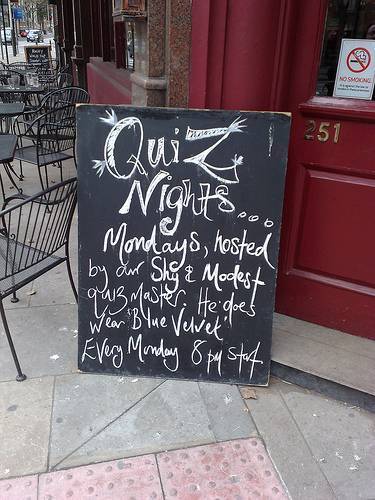 QuiZ
Nights...
Mondays, hosted
by our Shy & Modest
quiz master. He does
Wear 'Blue Velvet'
Every Monday 8pm start
NO SMOKING
251